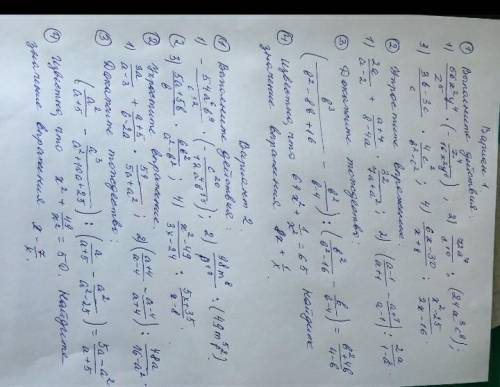 Вариант 1
① Выполните действия:
1) 56x²y⁴/z⁵ · (- z⁴/16x²y); 2) 72a⁷/c¹⁰ : (24a³c⁸);
3) (3b-3c)/c · 4c²/(b²-c²); 4) (6x-30)/(x+8) : (x²-25)/(2x-16)
② Упростите выражение:
1) 2a/(a-2) + (a+4)/(8-4a) · 32/(4a+a²); 2) ((a-1)/(a+1) - (a+1)/(a-1)) : 2a/(1-a)
③ Докажите тождество:
(b³/(b²-8b+16) - b²/(b-4)) : (b²/(b²-16) - b/(b-4)) = (b²+4b)/(4-b)
④ Известно, что 64x² + 1/x² = 65 Найдите
значение выражения 8x + 1/x
Вариант 2
① Выполните действия:
1) - 54a⁶b⁹/c¹² · c²⁰/(...); 2) 98m⁸/p¹³ : (49m⁵p²)
3) (5a+5b)/b · 6b²/(a²-b²); 4) (x²-49)/(3x-24) : (5x+35)/(x-8)
② Упростите выражение:
1) 3a/(a-3) + (a+5)/(6-2a) · 54/(5a+a²); 2) ((a+4)/(a-4) - (a-4)/(a+4)) : 48a/(16-a²)
③ Докажите тождество:
(a²/(a+5) - a³/(a²+10a+25)) : (a/(a+5) - a²/(a²-25)) = (5a-a²)/(a+5)
④ Известно, что x² + 49/x² = 50. Найдите
значение выражения x - 7/x